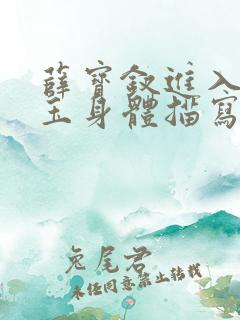 薛寶釵進入
玉身體描寫
兔尾君
未任同意禁止转载